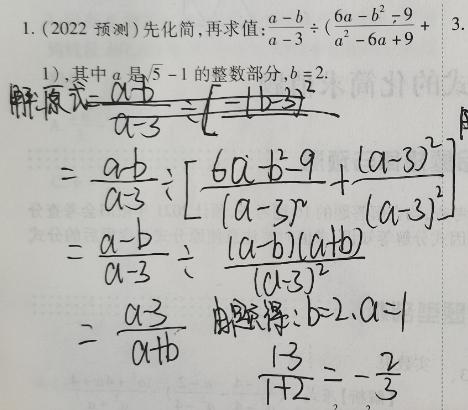 1. (2022 预测)先化简,再求值:\frac{a-b}{a-3}÷(\frac{6a-b²-9}{a²-6a+9}+ 3.
1),其中 a 是√5-1 的整数部分,b=2.
解:原式=\frac{a-b}{a-3}÷[\frac{-(b-3)²}{}
=\frac{a-b}{a-3}÷[\frac{6a-b²-9}{(a-3)²}+\frac{(a-3)²}{(a-3)²}]
=\frac{a-b}{a-3}÷\frac{(a-b)(a+b)}{(a-3)²}
=\frac{a-3}{a+b} 由题意得:b=2、a=1
\frac{1-3}{1+2}=-\frac{2}{3}